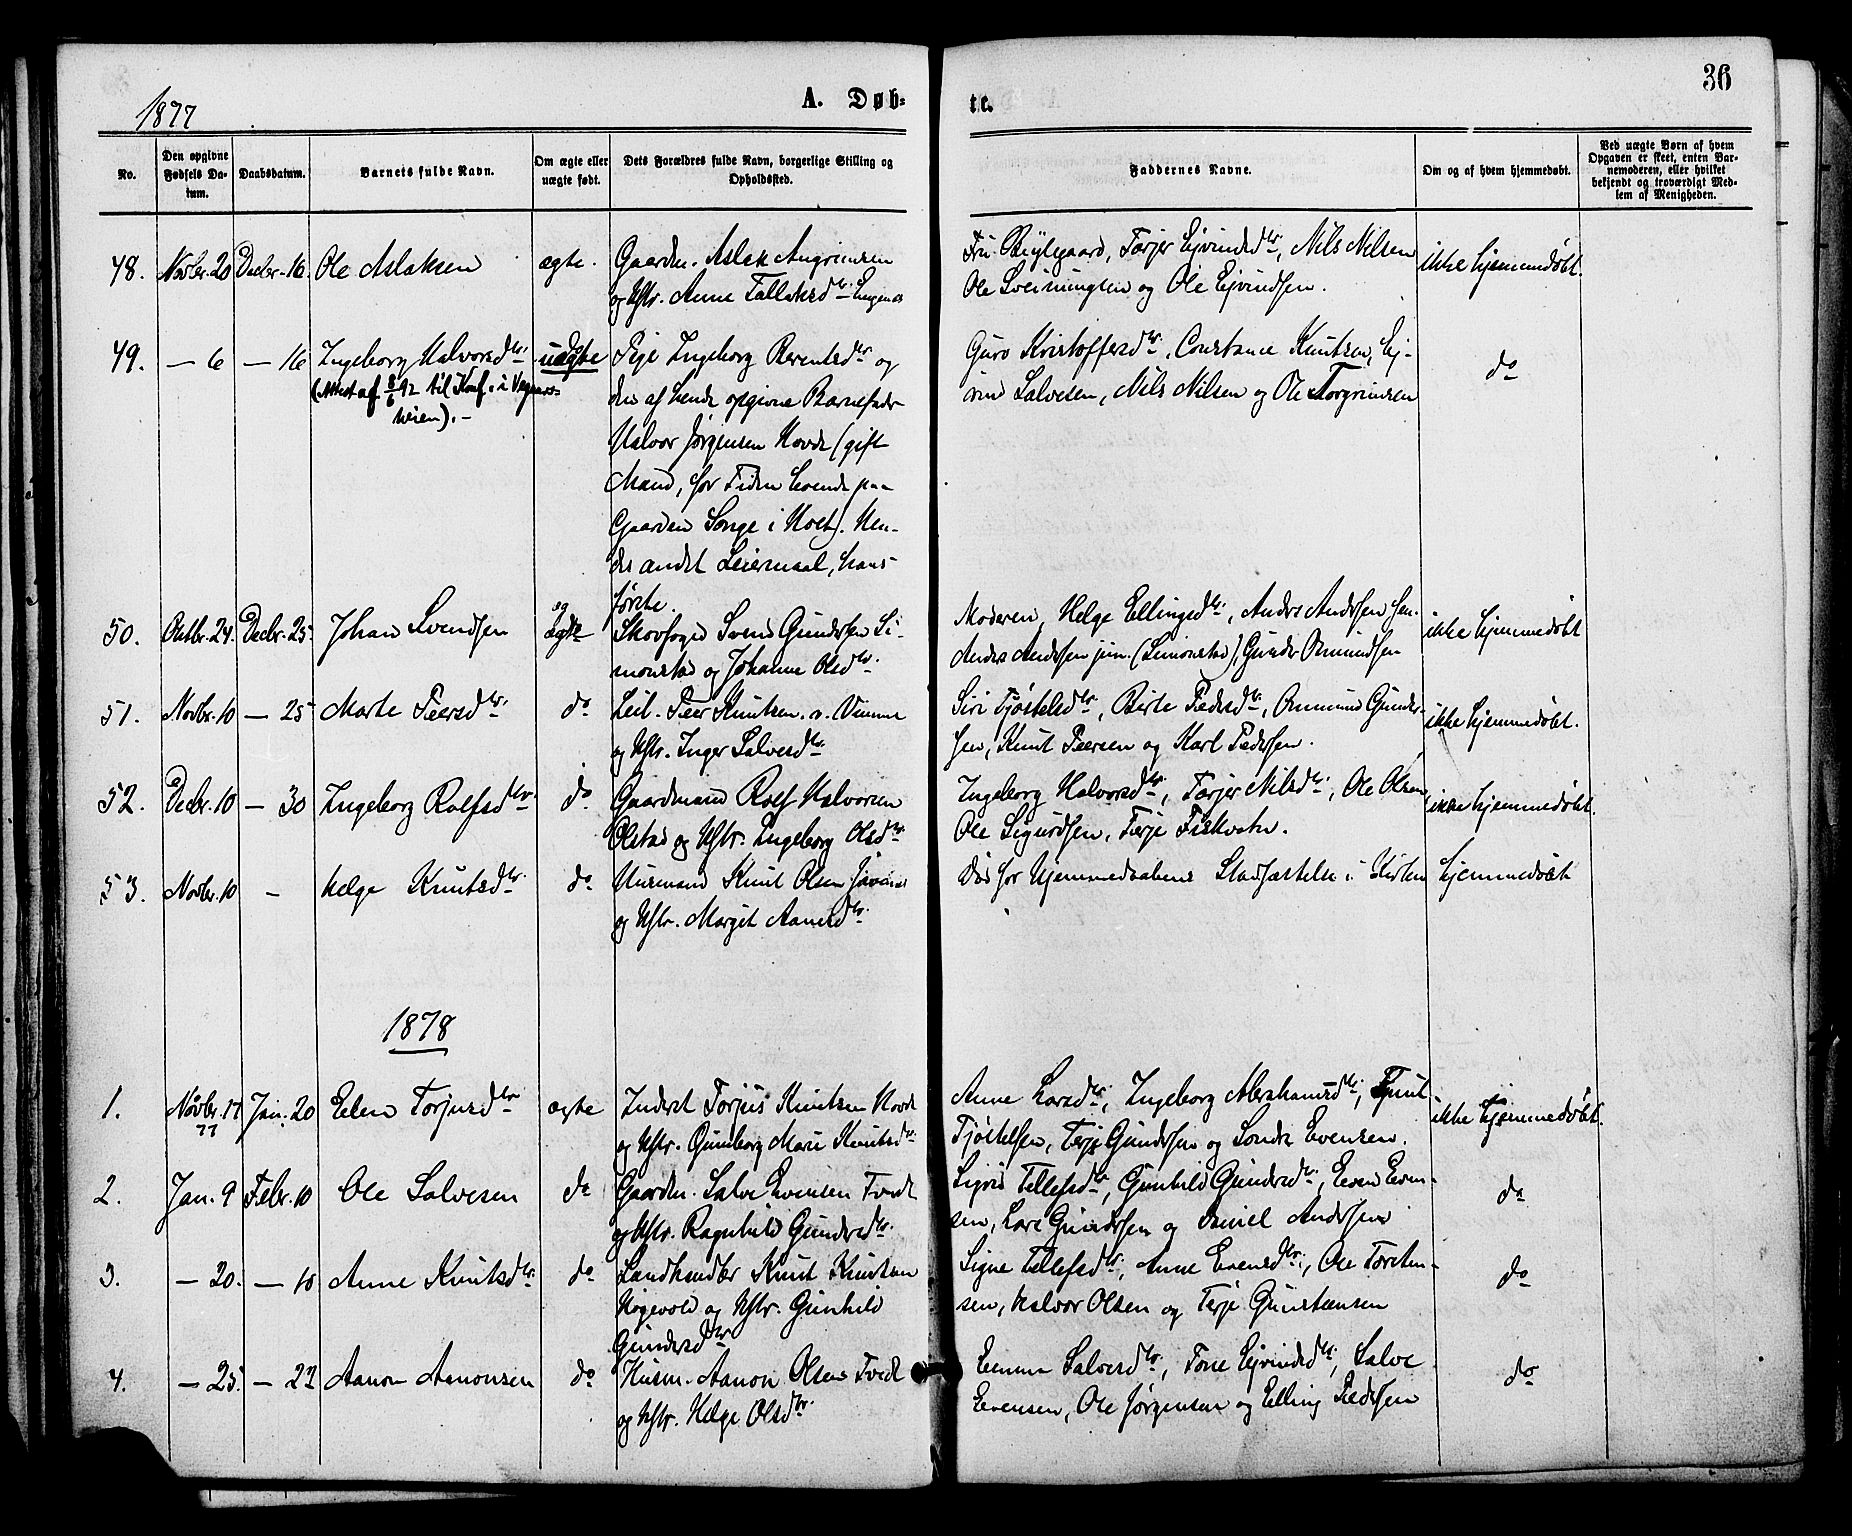 36
1877
A. Døb-
te.
No.
Den opgivne Fødsels Datum.
Daabsdatum.
Barnets fulde Navn.
Om ægte eller uægte født.
Dets Forældres fulde Navn, borgerlige Stilling og Opholdssted.
Faddernes Navne.
Om og af hvem hjemmedøbt.
Ved uægte Børn af hvem Opgaven er skeet, enten Barnemoderen, eller hvilket bekjendt og troværdigt Medlem af Menigheden.
48. Novbr. 20 Decbr. 16 Ole Aslaksen ægte. Gaardm. Aslak
og Hstr. Anne Tallaksdtr
Fru Torjer Ejvindsdtr, Nils Nilsen
Ole og Ole Ejvindsen.
ikke hjemmedøbt.
49. — 6 — 16 Ingeborg Halvorsdtr. uægte Pige Ingeborg Berentsdtr og
(Attest af 8/6 92 til Konf. i
den af hende opgivne Barnefader
Halvor Jørgensen Hovde (gift
Mand, for Tiden boende paa
Gaarden Songe i Holt). Hen-
des andet Leiermaal, hans
første.
Guro Kristoffersdtr, Constance Knutsen, Ej-
vind Salvesen, Nils Nilsen og Ole Torgrimsen
do
50. Octbr. 24. Decbr. 25. Johan Svendsen ægte Skovfoged Svend Gundersen Si-
monstad og Johanne Olsdtr.
Moderen, Helge Ellingsdtr, Anders Andersen sen.
Anders Andersen jun. (Simonstad), Gunder Osmundsen
ikke hjemmedøbt
51. Novbr. 10 — 25 Marte Peersdtr. do Leil. Peer Knutsen v. Vimme
og Hstr. Inger Salvesdtr
Siri Tjøstelsdtr, Birte Pedersdtr, Osmund Gunder-
sen, Knut Peersen og Karl Pedersen.
ikke hjemmedøbt.
52. Decbr. 10 — 30 Ingeborg Rolfsdtr. do Gaardmand Rolf Halvorsen
Ølstad og Hstr. Ingeborg Olsdtr
Ingeborg Halvorsdtr, Torjer Nilsdtr, Ole Olsen
Ole Sigurdsen, Terje Fiskvatn.
ikke hjemmedøbt.
53. Novbr. 10 - Helge Knutsdtr. do Husmand Knut Olsen
og Hstr. Margit Aanesdtr.
Død før Hjemmedaabens Stadfæstelse i Kirken
hjemmedøbt
1878
1. Novbr. 17 77 Jan. 20 Ellen Torjusdtr ægte Inderst Torjus Knutsen Hovde
og Hstr. Gunborg Marie Knutsdtr
Anne Larsdtr, Ingeborg Abrahamsdtr, Knut
Tjøstelsen, Terje Gundersen og Sondre Evensen.
ikke hjemmedøbt.
2. Jan. 9 Febr. 10 Ole Salvesen do Gaardm. Salve Evensen Tvedt
og Hstr. Ragnhild Gundersdtr.
Sigrid Tellefsdtr, Gunhild Gundersdtr, Even Even-
sen, Lars Gundersen og Daniel Andersen
do
3. — 20. — 10 Anne Knutsdtr. do Landhandler Knut Knutsen
Høgevold og Hstr. Gunhild
Gundersdtr
Signe Tellefsdtr, Anne Evensdtr, Ole Torsten-
sen, Halvor Olsen og Terje Gunstensen
do
4. — 25. — 27 Aanon Aanonsen do Husm. Aanon Olsen Tvedt
og Hstr. Helge Olsdtr.
Emma Salvesdtr, Tone Ejvindsdtr, Salve
Evensen, Ole Jørgensen og Elling Pedersen
do